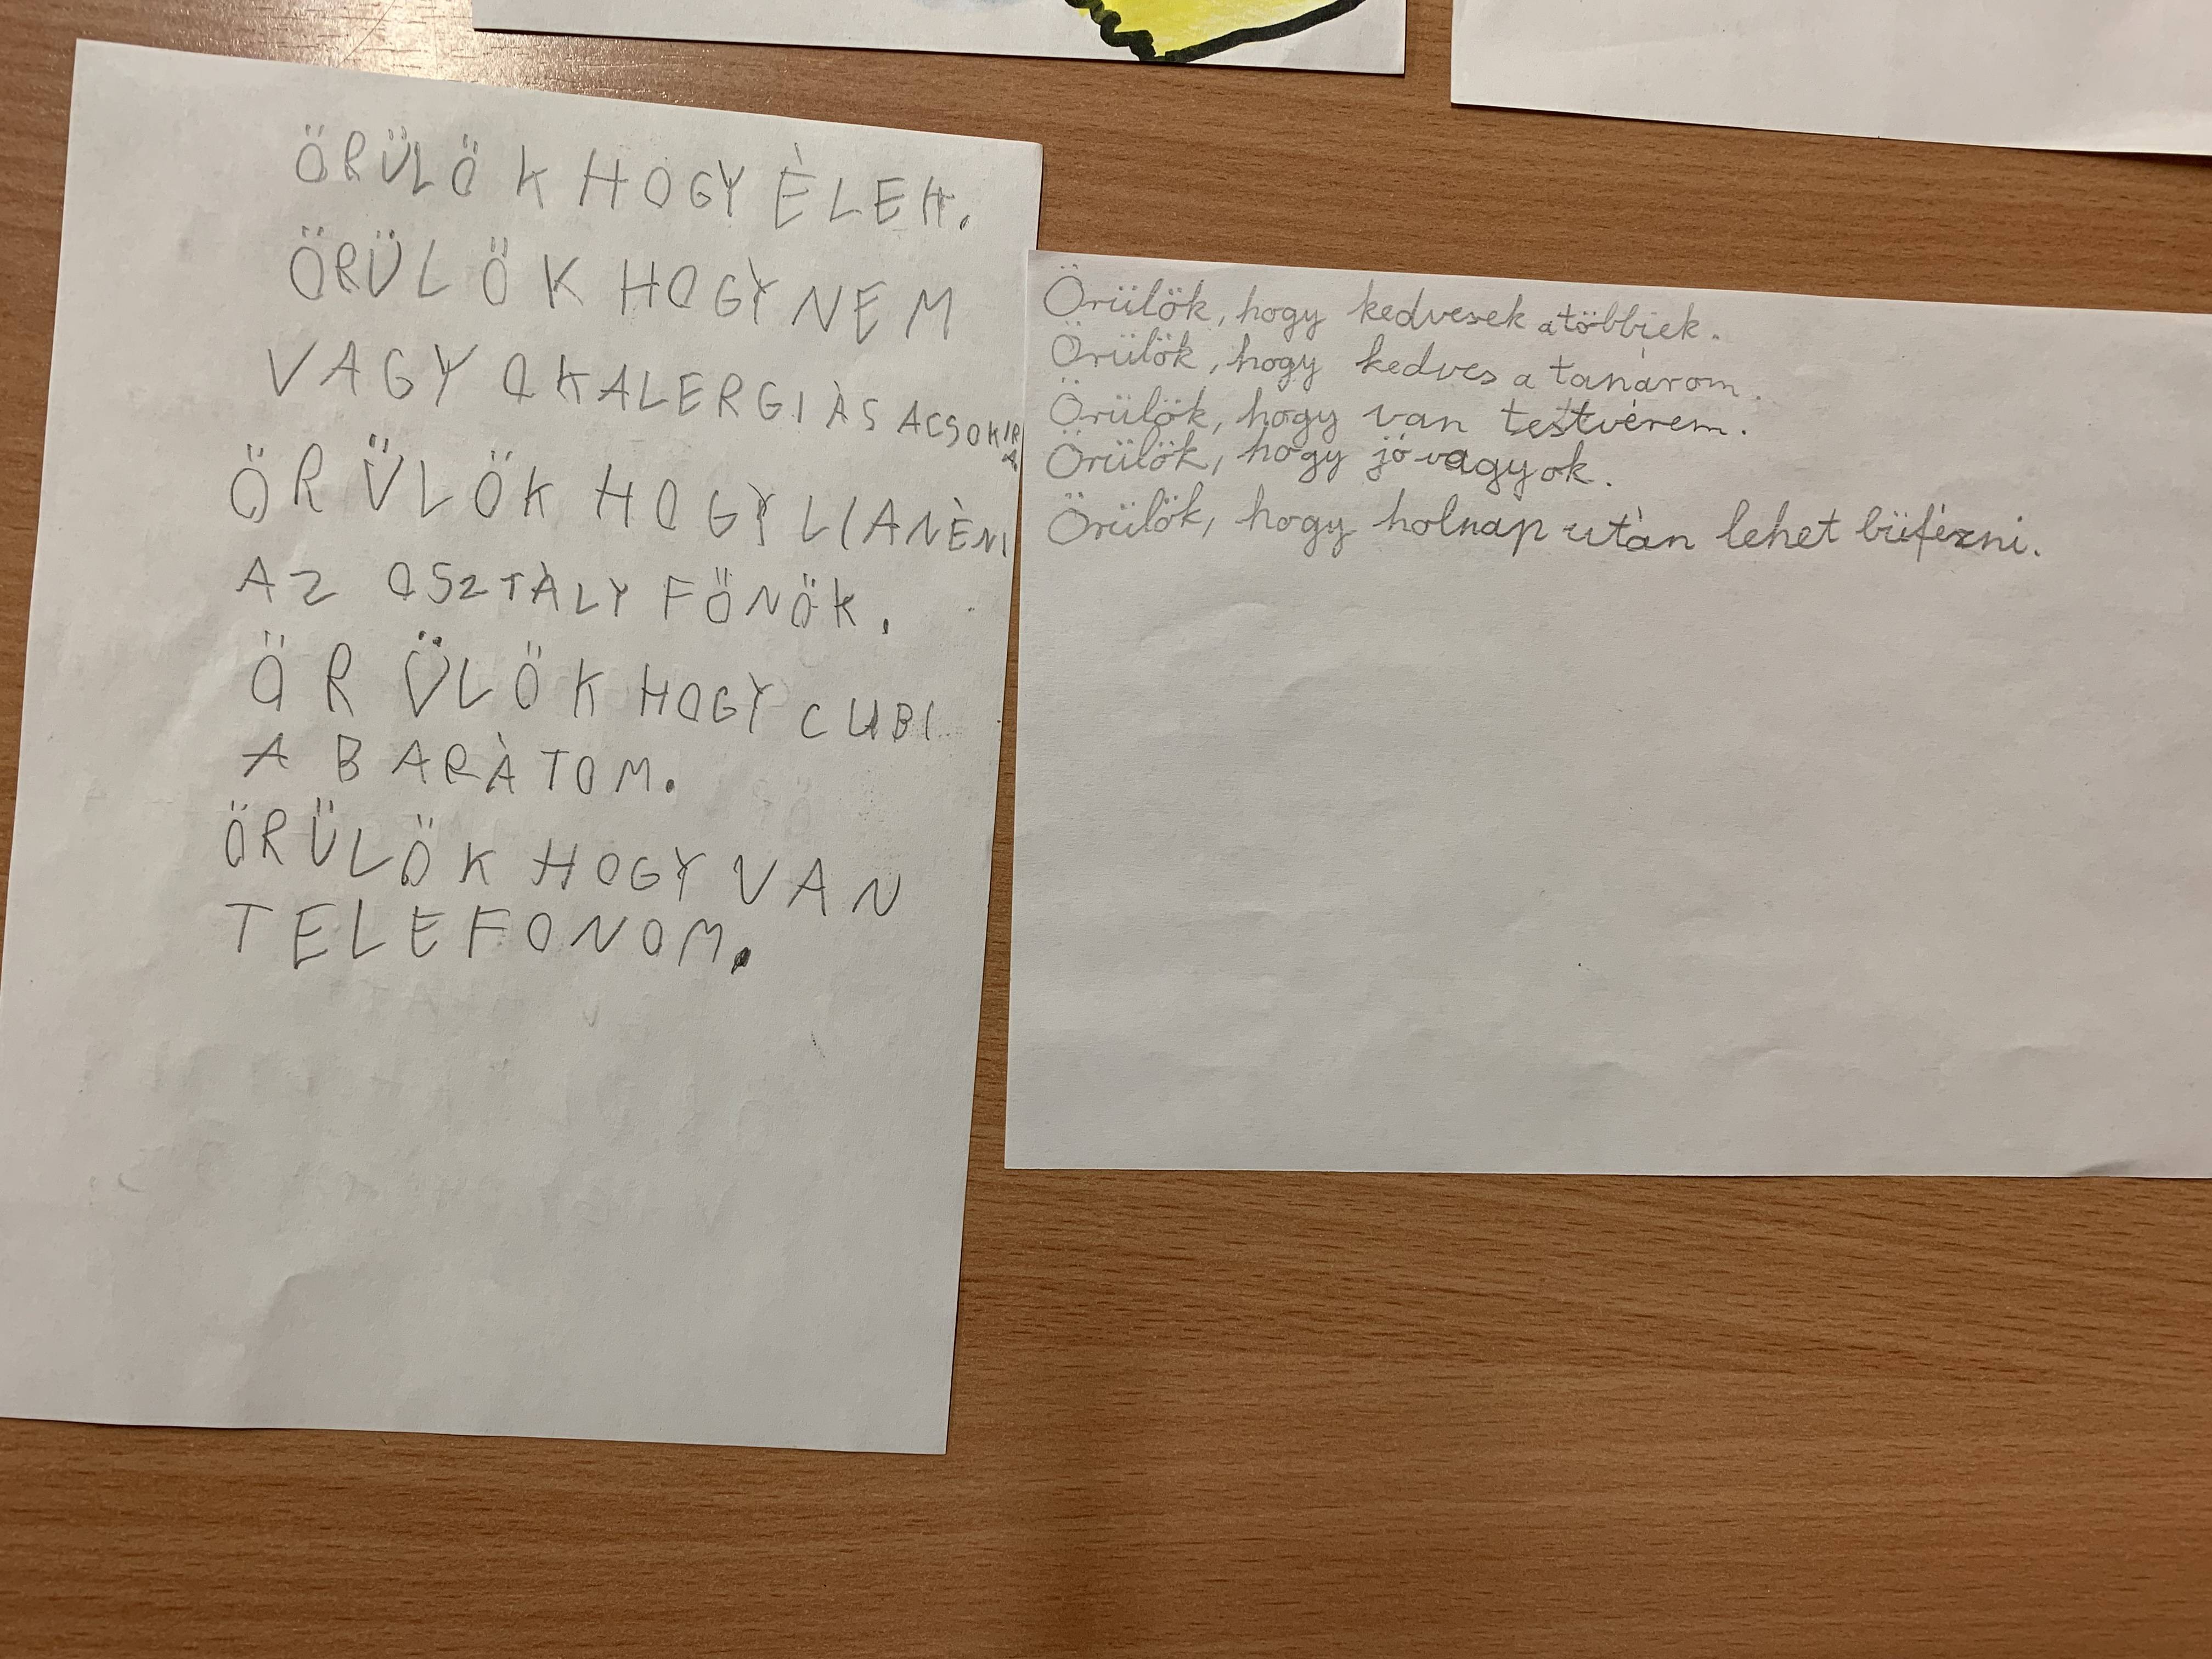 ÖRÜLÖK HOGY ÈLEK.
ÖRÜLÖK HOGY NEM
VAGY OKALERGIÀS ACSOKIRA
ÖRÜLÖK HOGY LIANÈNI
AZ OSZTÀLY FŐNÖK.
ÖRÜLÖK HOGY CUBI
A BARÀTOM.
ÖRÜLÖK HOGY VAN
TELEFONOM.
Örülök, hogy kedvesek a többiek.
Örülök, hogy kedves a tanárom.
Örülök, hogy van testvérem.
Örülök, hogy jó vagyok.
Örülök, hogy holnap után lehet büfézni.